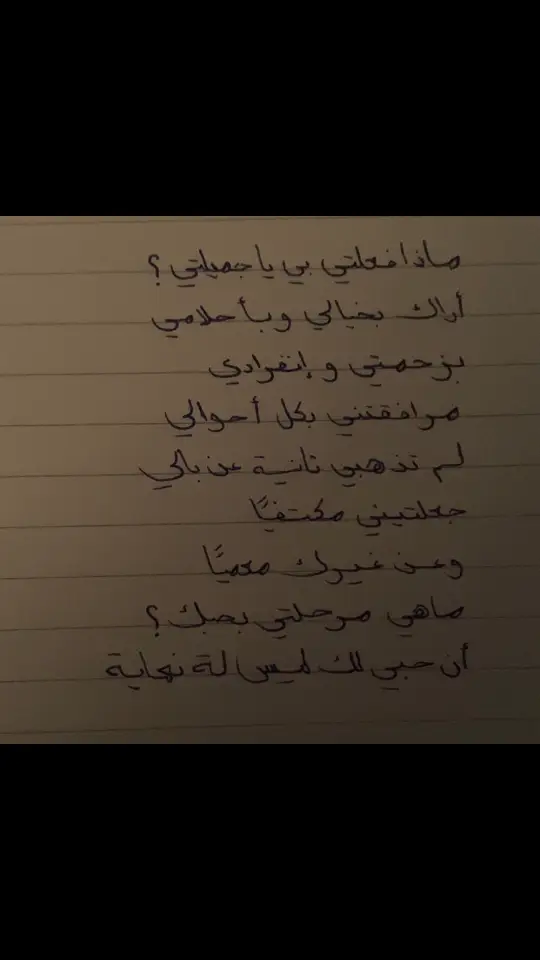 ماذا فعلتي بي يا جميلتي ؟
أراك بخيالي وبأحلامي
بزحمتي و إنفرادي
مرافقتني بكل أحوالي
لم تذهبي ثانية عن بالي
جعلتيني مكتفيًا
وعن غيرك معميًا
ماهي مرحلتي بحبك ؟
أن حبي لك ليس لة نهاية